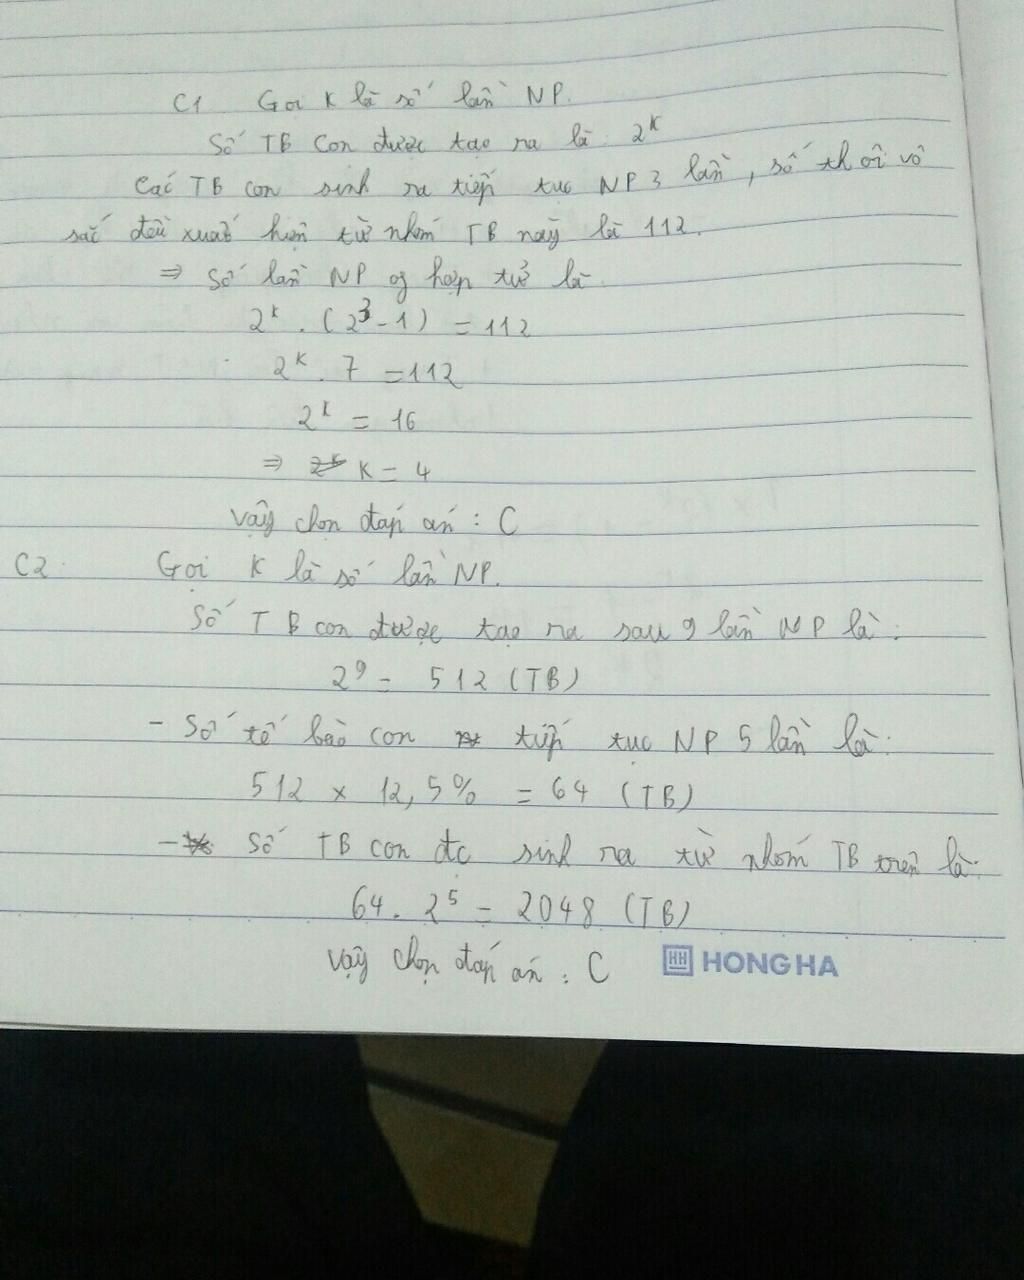 C1 Gọi K là số lần NP.
Số TB con được tạo ra là: 2^K
Các TB con sinh ra tiếp tục NP 3 lần, số thoi vô
sắc đều xuất hiện từ nhóm TB này là 112.
⇒ Số lần NP of hợp tử là
2^k . (2^3 - 1) = 112
2^K . 7 = 112
2^k = 16
⇒ K = 4
Vậy chọn đáp án : C
C2. Gọi K là số lần NP.
Số TB con được tạo ra sau 9 lần NP là:
2^9 = 512 (TB)
- Số tế bào con tiếp tục NP 5 lần là:
512 x 12,5% = 64 (TB)
- Số TB con đc sinh ra từ nhóm TB trên là:
64 . 2^5 = 2048 (TB)
Vậy chọn đáp án : C
HH HONG HA